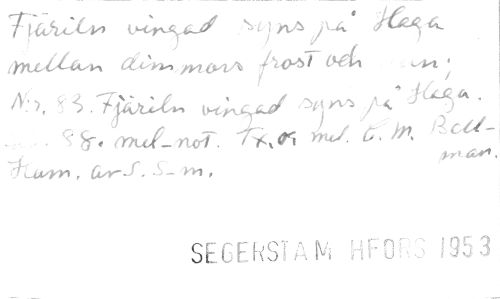 Fjäriln vingad syns på Haga
mellan dimmors frost och
Nr. 83. Fjäriln vingad syns på Haga.
88. mel-not. Tx. o. mel. C. M. Bell-
man.
Harm. av S. S-m.
SEGERSTAM HFORS 1953